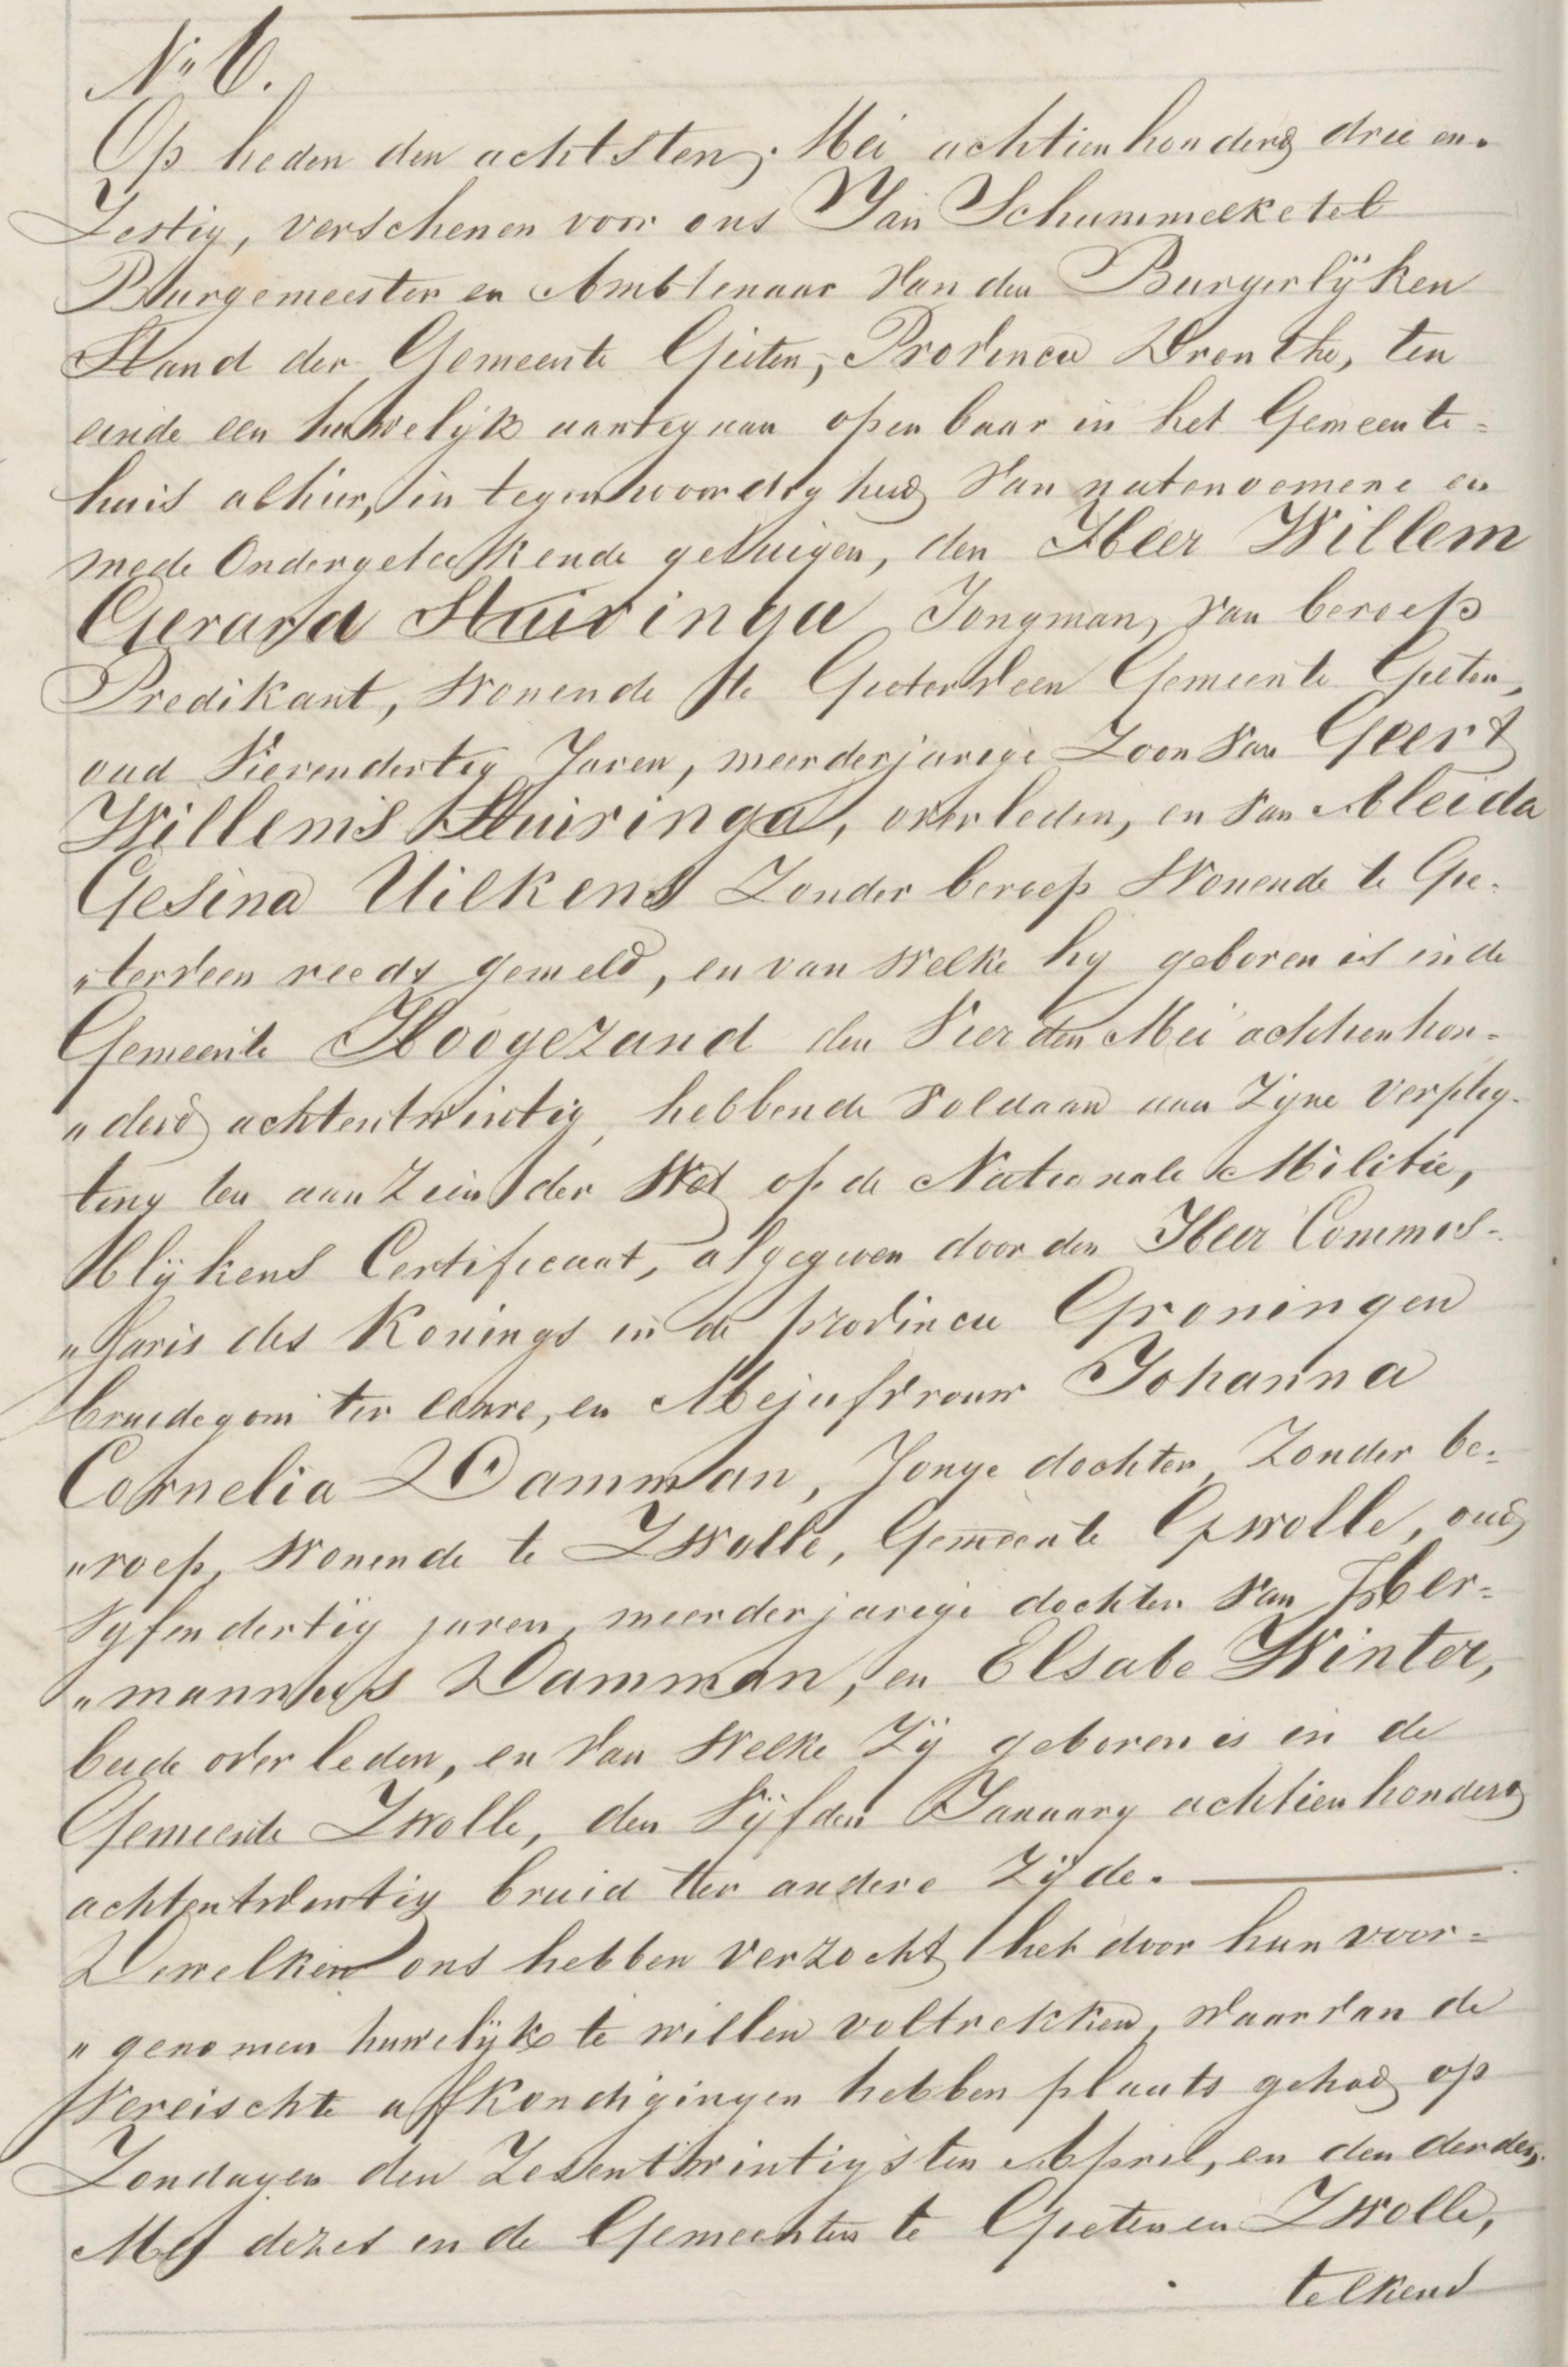 N° 6.
Op heden den achtsten Mei achtienhonderd drie en-
Zestig, verschenen voor ons Jan Schummelketel
Burgemeester en Ambtenaar van den Burgerlijken
Stand der Gemeente Gieten, Provincie Drenthe, ten
einde een huwelijk aantegaan openbaar in het Gemeente=
huis alhier, in tegenwoordigheid van natenoemene en
mede Ondergeteekende getuigen, den Heer Willem
Gerard Stuivinga Jongman, van beroep
Predikant, Wonende te Gieterveen Gemeente Gieten,
oud Vierendertig Jaren, meerderjarige Zoon van Geert
Willems Stuivinga, overleden, en van Aleida
Gesina Uilkens Zonder beroep Wonende te Gie=
"terveen reeds gemeld, en van welke hy geboren is in de
Gemeente Hoogezand den Vierden Mei achttienhon=
"derd achtentwintig, hebbende voldaan aan Zijne verplig-
ting ten aanzien der Wet op de Nationale Militie,
blijkens Certificaat, afgegeven door den Heer Commis-
"saris des Konings in de provincie Groningen
bruidegom ter eenre, en Mejufvrouw Johanna
Cornelia Damman, Jonge dochter, Zonder be=
"roep, Wonende te Zwolle, Gemeente Zwolle, oud
Vyfendertig jaren, meerderjarige dochter van Her=
"mannus Damman, en Elsabe Winter,
beide overleden, en van Welke Zij geboren is in de
Gemeente Zwolle, den Vijfden January achtienhonderd
achtentwintig bruid ter andere Zijde.
Dewelken ons hebben verzocht het door hun voor=
"genomen huwelijk te willen voltrekken, waarvan de
Vereischte afkondigingen hebben plaats gehad op
Zondagen den Zesentwintigsten April, en den derden
Mei dezes in de Gemeenten te Gieten en Zwolle,
telkens